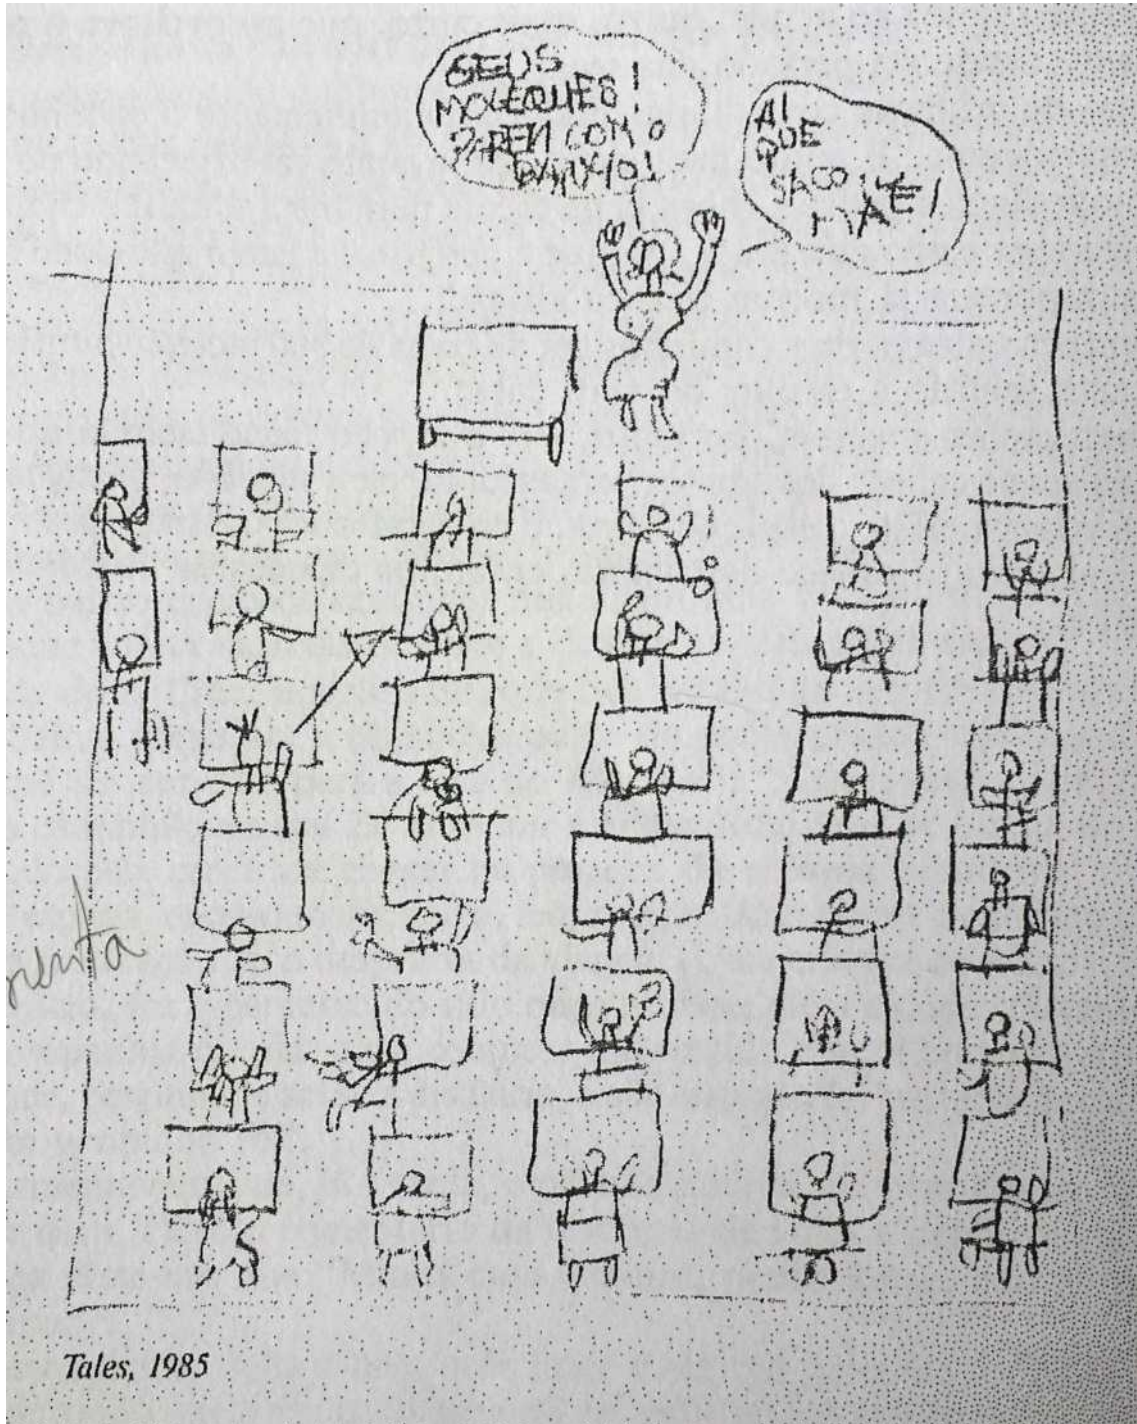 SEUS
MOLEQUES!
PAREN COM O
AI
QUE
SACO
MÃE!
Tales, 1985